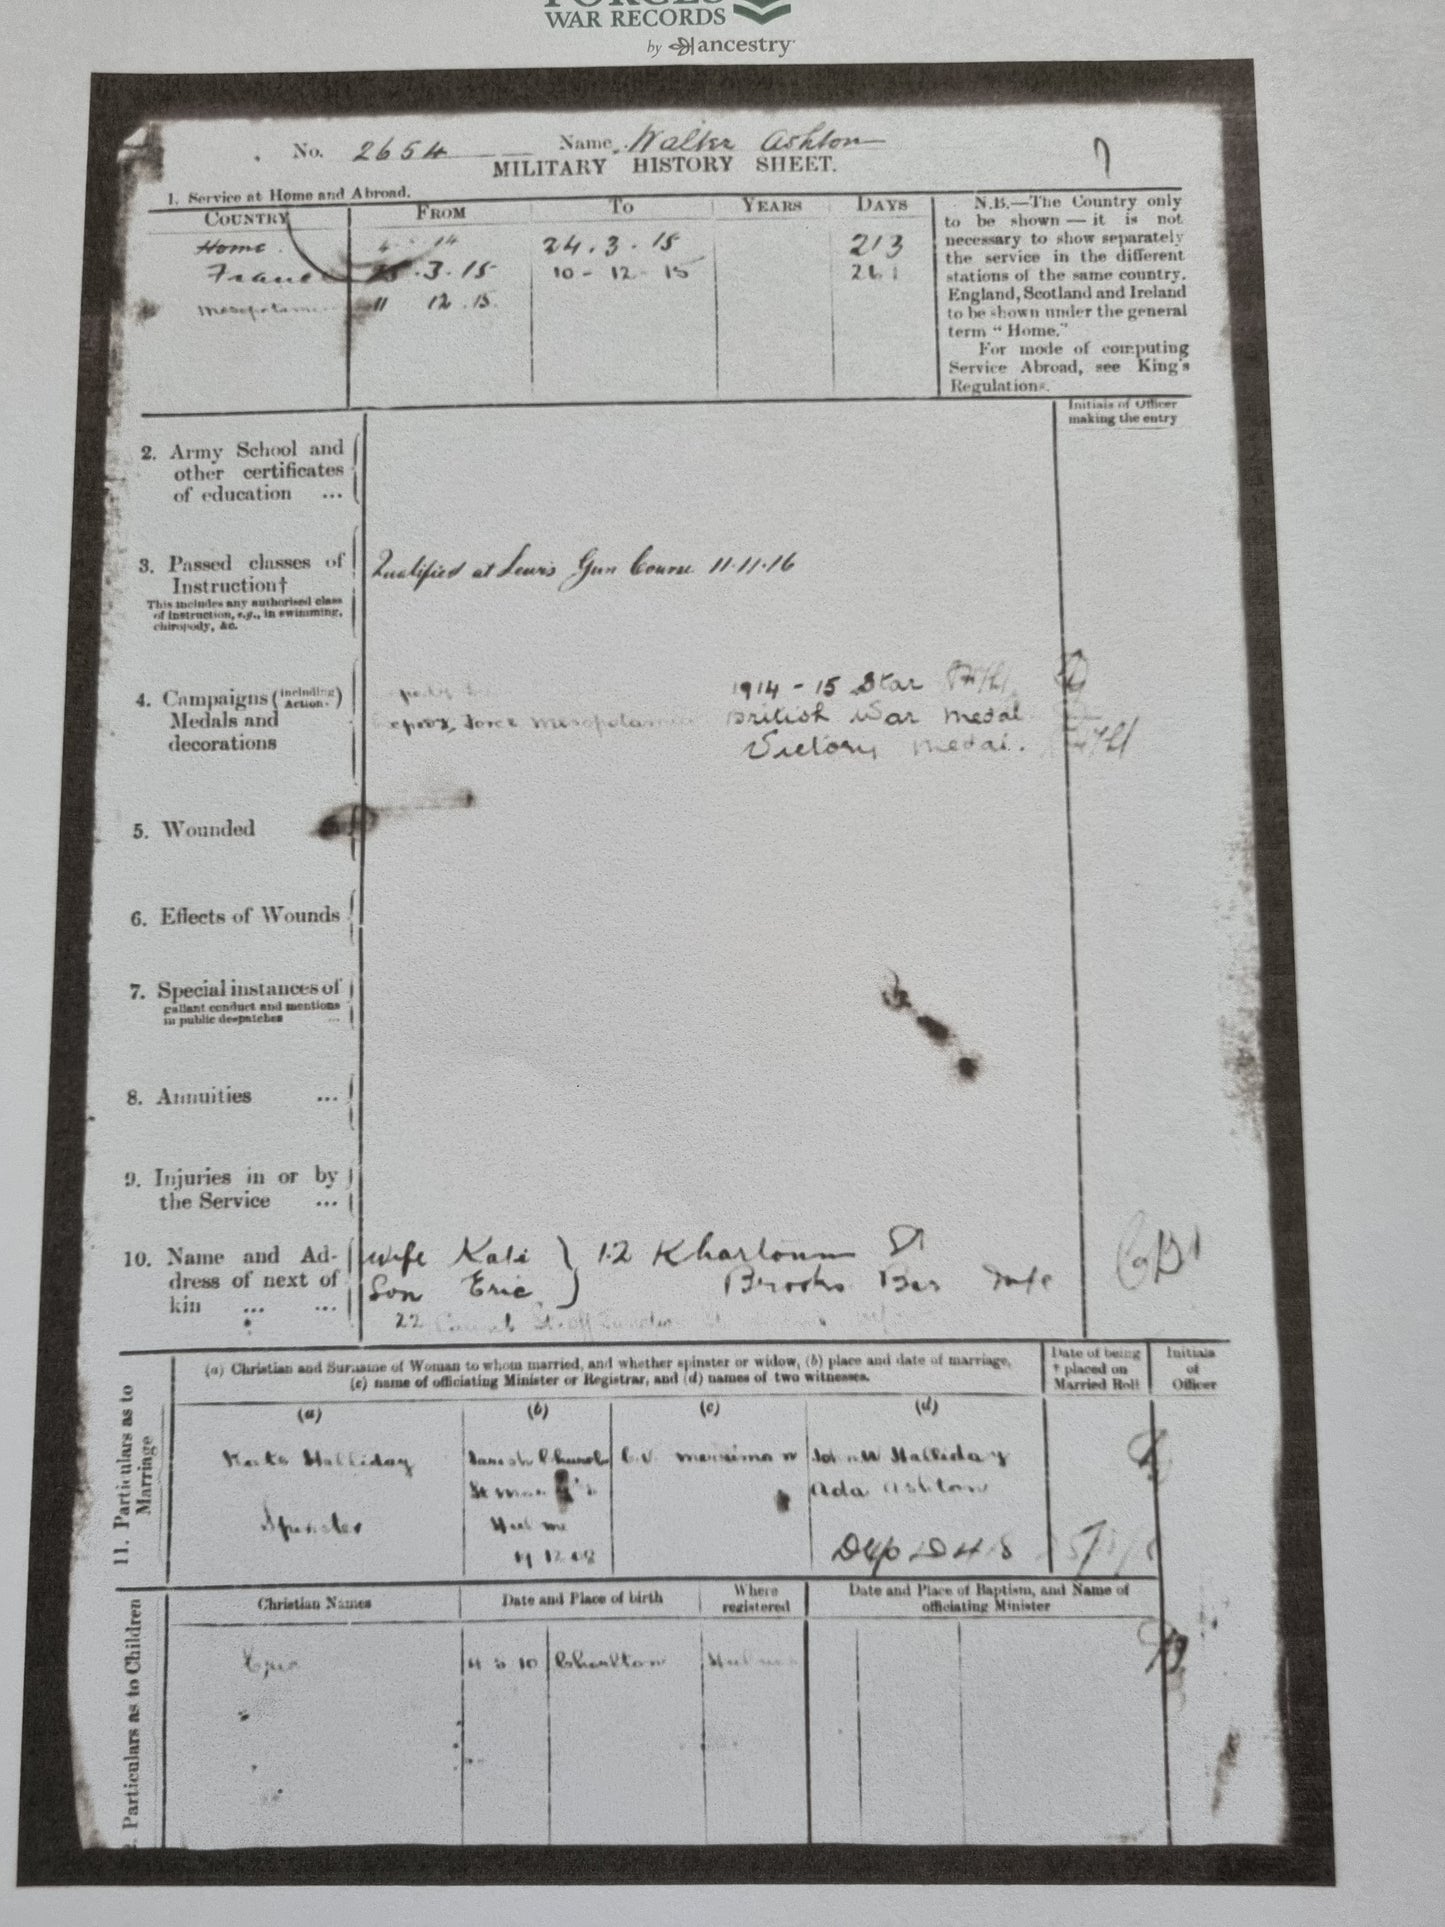 WAR RECORDS
by ancestry
No. 2654 Name Walter Ashton
MILITARY HISTORY SHEET.
1. Service at Home and Abroad.
COUNTRY FROM TO YEARS DAYS
Home 14 24.3.15 213
France .3.15 10-12-15 261
Mesopotamia 11 12.15
N.B.—The Country only
to be shown — it is not
necessary to show separately
the service in the different
stations of the same country.
England, Scotland and Ireland
to be shown under the general
term "Home."
For mode of computing
Service Abroad, see King's
Regulations.
Initials of Officer
making the entry
2. Army School and
other certificates
of education ...
3. Passed classes of
Instruction†
This includes any authorised class
of instruction, e.g., in swimming,
chiropody, &c.
Qualified at Lewis Gun Course 11.11.16
4. Campaigns (including Action.)
Medals and
decorations
1914-15 Star
force Mesopotamia British War medal
Victory medal.
5. Wounded
6. Effects of Wounds
7. Special instances of
gallant conduct and mentions
in public despatches ...
8. Annuities ...
9. Injuries in or by
the Service ...
10. Name and Ad-
dress of next of
kin ... ...
Wife Kate } 12 Khartoum St
Son Eric } Brooks Bar
22
11. Particulars as to
Marriage
(a) Christian and Surname of Woman to whom married, and whether spinster or widow, (b) place and date of marriage,
(c) name of officiating Minister or Registrar, and (d) names of two witnesses.
Date of being
† placed on
Married Roll
Initials
of
Officer
(a) (b) (c) (d)
Kate Halliday Parish Church C.V. Merriman John W Halliday
St Ada Ashton
Spinster
Particulars as to Children
Christian Names Date and Place of birth Where
registered
Date and Place of Baptism, and Name of
officiating Minister
Eric 10 Chorlton